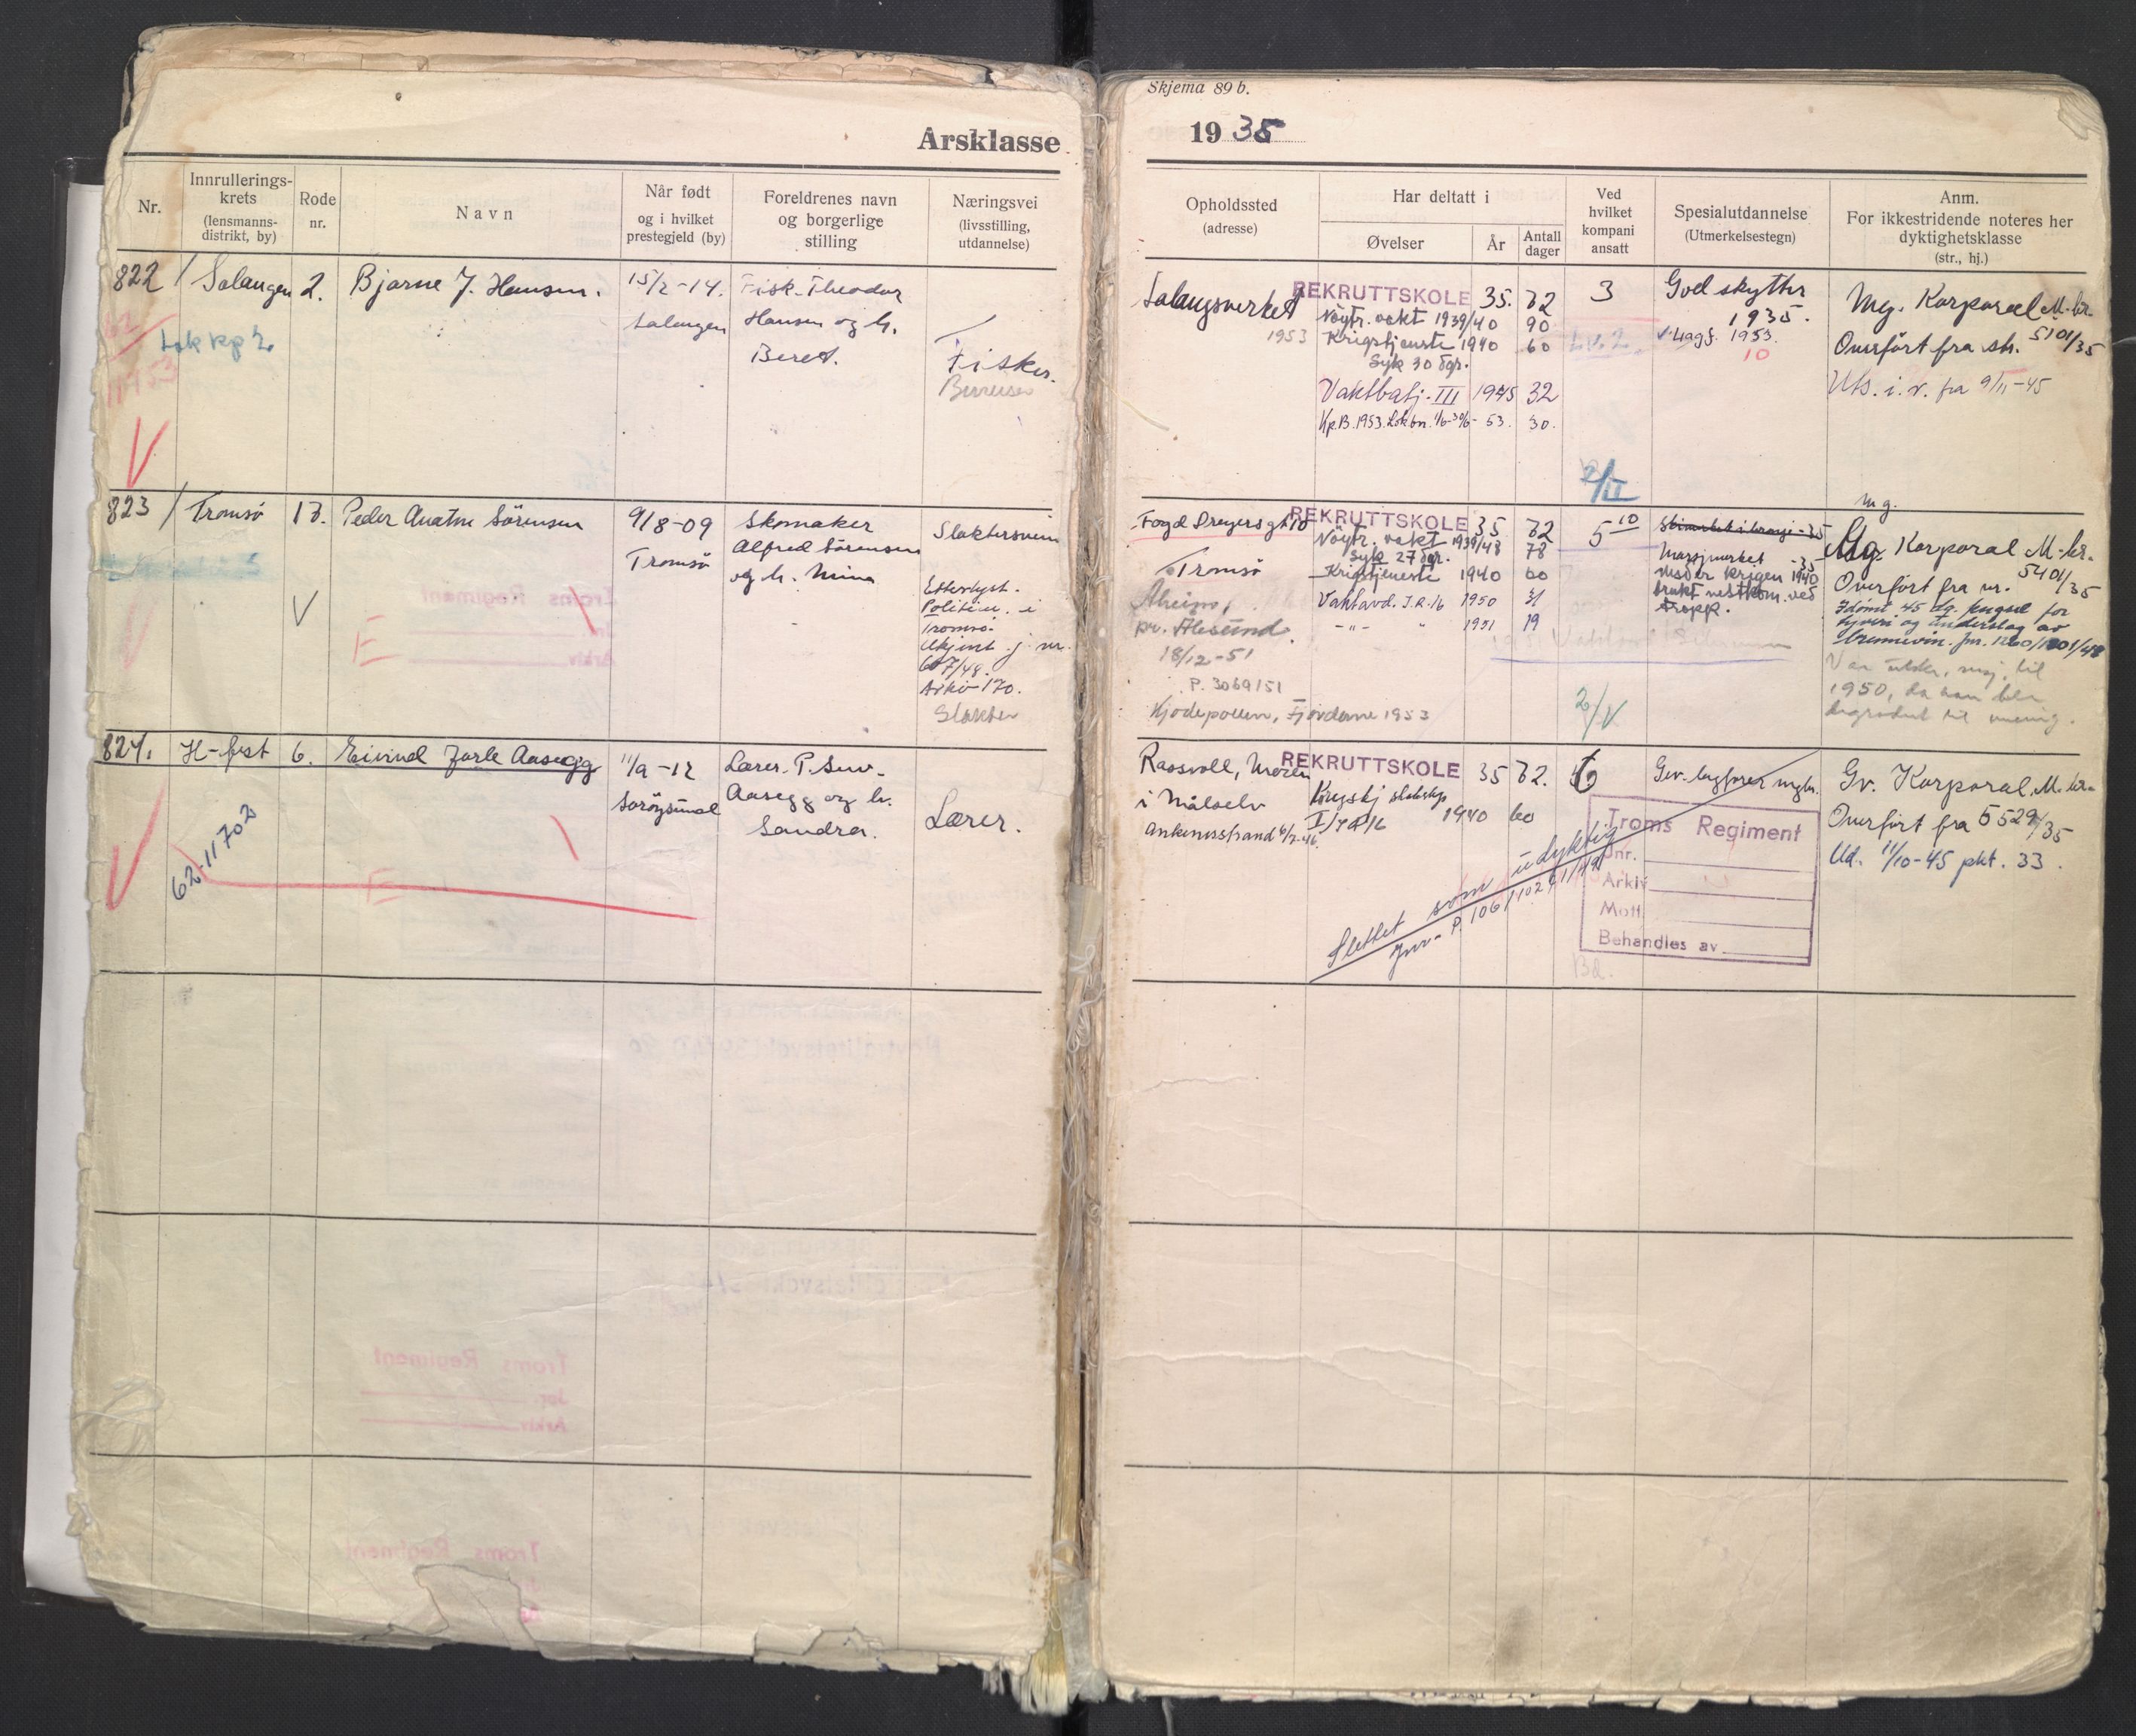 Årsklasse
Nr.
Innrullerings-
krets
(lensmanns-
distrikt, by)
Rode
nr.
Navn
Når født
og i hvilket
prestegjeld (by)
Foreldrenes navn
og borgerlige
stilling
Næringsvei
(livsstilling,
utdannelse)
822 / Salangen 2. Bjarne J. Hansen.
15/2-14.
Salangen
Fisk. Theodor
Hansen og h.
Beret.
Fisker.
Lok kp 2
823 / Tromsö 13. Peder Anaton Sörensen
9/8-09
Tromsö
Skomaker
Alfred Sörensen
og h. Mina
Slaktersvein
Etterlyst.
Politiet i
Tromsö.
Ukjent j. nr.
607/48.
Arkiv 170.
Slakter
V
E
824. H-fest 6. Eivind Jarle Aasegg
11/9-12
Sørøysund
Lærer P. Sev-
Aasegg og h.
Sandra.
Lærer.
62-11702
E
Skjema 89 b.
1935
Opholdssted
(adresse)
Har deltatt i
Øvelser
År
Antall
dager
Ved
hvilket
kompani
ansatt
Spesialutdannelse
(Utmerkelsestegn)
Anm.
For ikkestridende noteres her
dyktighetsklasse
(str., hj.)
Salangsverket
1953
REKRUTTSKOLE 35. 72
Nöytr. vakt 1939/40 90
Krigstjeneste 1940 60
Syk 30 dgr.
Vaktbatj. III 1945 32
Kp.B. 1953. Lok bn. 1/6-30/6-53. 30.
3
God skytter
1935.
1953.
10
Mg. Korporal M-kr.
Overført fra str. 5101/35
Uts. i. v. fra 9/11-45
2/II
Fogd Dreyersgt 10
Tromsö
Aheim,
pr. Ålesund.
18/12-51
P. 3069/51
Kjödepollen, Fjordane 1953
REKRUTTSKOLE 35 72
Nöytr. vakt 1939/40 78
Syk 27 dgr.
Krigstjeneste 1940 60
Vaktavd. I.R.16 1950 31
-"- " 1951 19
5 10
2/V
Marsjmerket -35
Under krigen 1940
brukt nestkom. ved
tropp.
mg.
Mg. Korporal M-kr.
Overført fra nr. 5401/35
Idömt 45 dg. fengsel for
tyveri og underslag av
brennevin. jnr. 1260/1301/48
1950, da han ble
degradert til menig.
Rossvoll, Moen
i Målselv
Ankenesstrand 6/2-46.
REKRUTTSKOLE 35 72.
Krigstj stabskp.
I/IR 16 1940 60
6
Gev. lagfører
Slettet som udyktig
Jnr- P. 106/11029/1/49
Troms Regiment
Jnr.
Arkiv
Mott.
Behandles av
Gv. Korporal, M-kr.
Overført fra 5529/35
Ud. 11/10-45 pkt. 33.